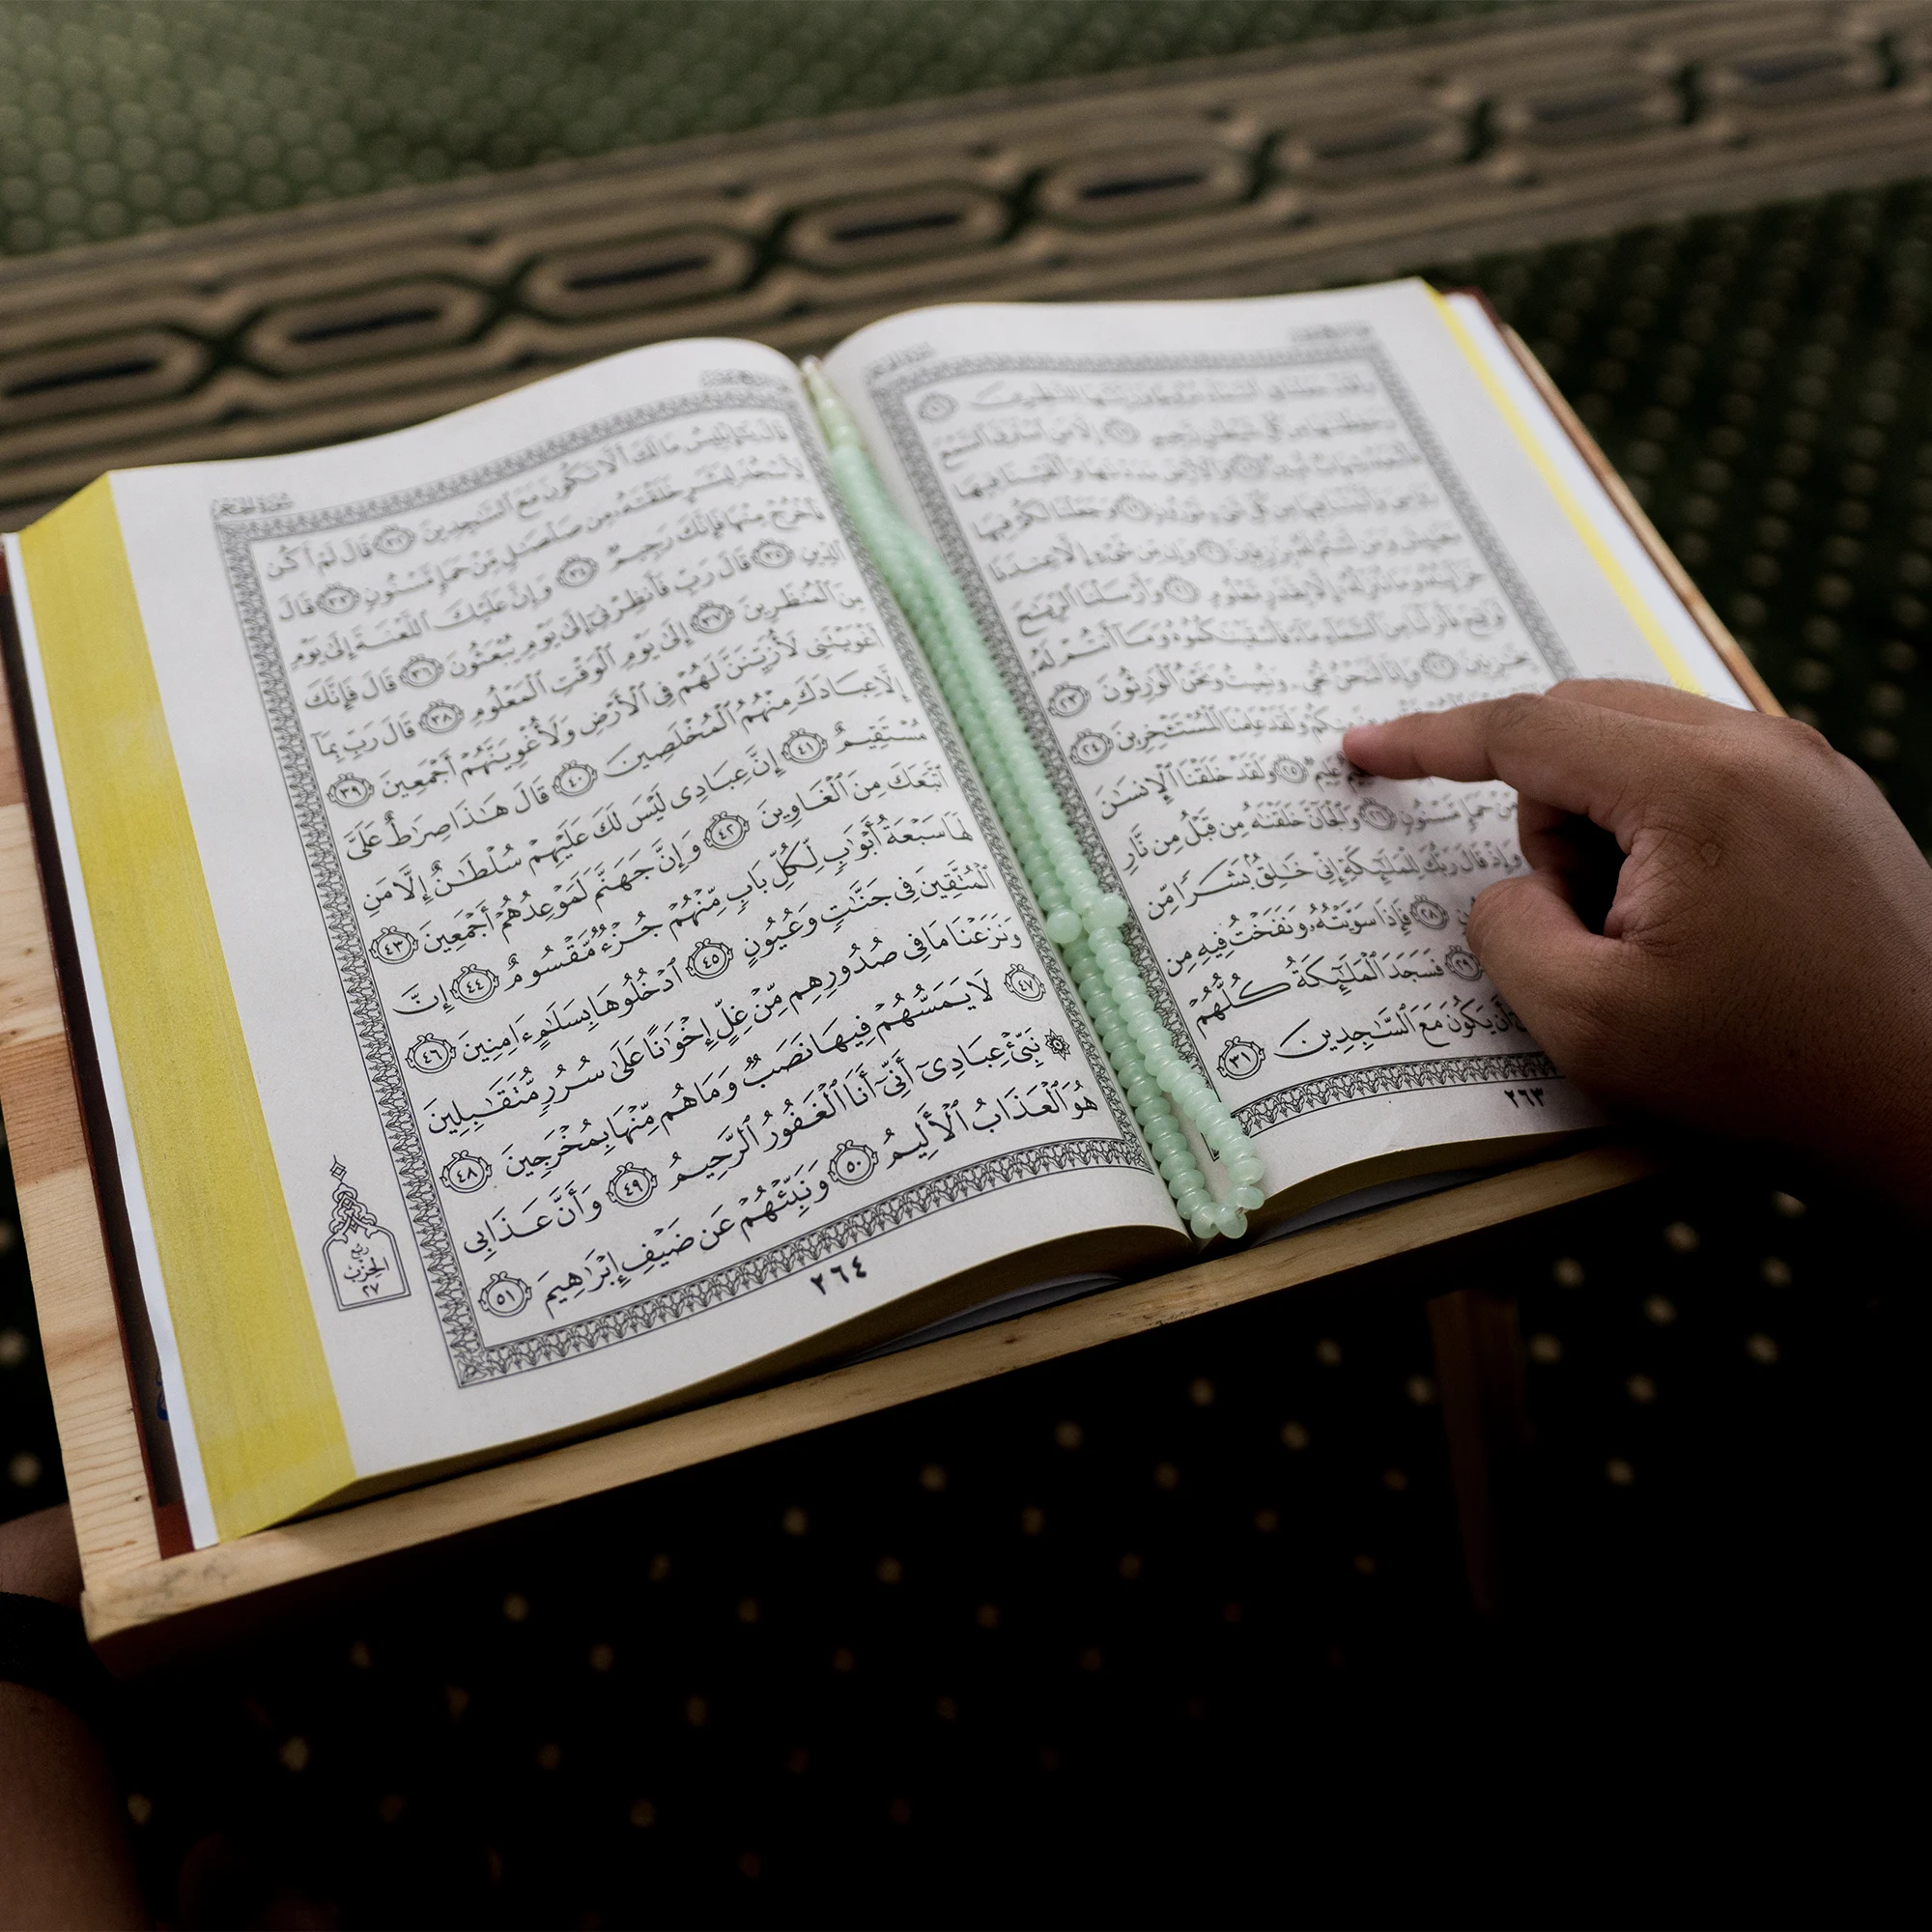 سُورَةُ الحِجْرِ
وَلَقَدْ جَعَلْنَا فِي ٱلسَّمَآءِ بُرُوجًا وَزَيَّنَّٰهَا لِلنَّٰظِرِينَ ١٦
وَحَفِظْنَٰهَا مِن كُلِّ شَيْطَٰنٍ رَّجِيمٍ ١٧ إِلَّا مَنِ ٱسْتَرَقَ ٱلسَّمْعَ
فَأَتْبَعَهُۥ شِهَابٌ مُّبِينٌ ١٨ وَٱلْأَرْضَ مَدَدْنَٰهَا وَأَلْقَيْنَا فِيهَا
رَوَٰسِيَ وَأَنۢبَتْنَا فِيهَا مِن كُلِّ شَيْءٍ مَّوْزُونٍ ١٩ وَجَعَلْنَا لَكُمْ فِيهَا
مَعَٰيِشَ وَمَن لَّسْتُمْ لَهُۥ بِرَٰزِقِينَ ٢٠ وَإِن مِّن شَيْءٍ إِلَّا عِندَنَا
خَزَآئِنُهُۥ وَمَا نُنَزِّلُهُۥٓ إِلَّا بِقَدَرٍ مَّعْلُومٍ ٢١ وَأَرْسَلْنَا ٱلرِّيَٰحَ
لَوَٰقِحَ فَأَنزَلْنَا مِنَ ٱلسَّمَآءِ مَآءً فَأَسْقَيْنَٰكُمُوهُ وَمَآ أَنتُمْ لَهُۥ
بِخَٰزِنِينَ ٢٢ وَإِنَّا لَنَحْنُ نُحْيِۦ وَنُمِيتُ وَنَحْنُ ٱلْوَٰرِثُونَ ٢٣
مِنكُمْ وَلَقَدْ عَلِمْنَا ٱلْمُسْتَـْٔخِرِينَ ٢٤
عَلِيمٌ ٢٥ وَلَقَدْ خَلَقْنَا ٱلْإِنسَٰنَ
مِّنْ حَمَإٍ مَّسْنُونٍ ٢٦ وَٱلْجَآنَّ خَلَقْنَٰهُ مِن قَبْلُ مِن نَّارِ
وَإِذْ قَالَ رَبُّكَ لِلْمَلَٰٓئِكَةِ إِنِّي خَٰلِقٌۢ بَشَرًا مِّن
٢٨ فَإِذَا سَوَّيْتُهُۥ وَنَفَخْتُ فِيهِ مِن
٢٩ فَسَجَدَ ٱلْمَلَٰٓئِكَةُ كُلُّهُمْ
أَن يَكُونَ مَعَ ٱلسَّٰجِدِينَ ٣١
٢٦٣
سُورَةُ الحِجْرِ
قَالَ يَٰٓإِبْلِيسُ مَا لَكَ أَلَّا تَكُونَ مَعَ ٱلسَّٰجِدِينَ ٣٢ قَالَ لَمْ أَكُن
لِّأَسْجُدَ لِبَشَرٍ خَلَقْتَهُۥ مِن صَلْصَٰلٍ مِّنْ حَمَإٍ مَّسْنُونٍ ٣٣ قَالَ
فَٱخْرُجْ مِنْهَا فَإِنَّكَ رَجِيمٌ ٣٤ وَإِنَّ عَلَيْكَ ٱللَّعْنَةَ إِلَىٰ يَوْمِ
ٱلدِّينِ ٣٥ قَالَ رَبِّ فَأَنظِرْنِيٓ إِلَىٰ يَوْمِ يُبْعَثُونَ ٣٦ قَالَ فَإِنَّكَ
مِنَ ٱلْمُنظَرِينَ ٣٧ إِلَىٰ يَوْمِ ٱلْوَقْتِ ٱلْمَعْلُومِ ٣٨ قَالَ رَبِّ بِمَآ
أَغْوَيْتَنِي لَأُزَيِّنَنَّ لَهُمْ فِي ٱلْأَرْضِ وَلَأُغْوِيَنَّهُمْ أَجْمَعِينَ ٣٩
إِلَّا عِبَادَكَ مِنْهُمُ ٱلْمُخْلَصِينَ ٤٠ قَالَ هَٰذَا صِرَٰطٌ عَلَيَّ
مُسْتَقِيمٌ ٤١ إِنَّ عِبَادِي لَيْسَ لَكَ عَلَيْهِمْ سُلْطَٰنٌ إِلَّا مَنِ
ٱتَّبَعَكَ مِنَ ٱلْغَاوِينَ ٤٢ وَإِنَّ جَهَنَّمَ لَمَوْعِدُهُمْ أَجْمَعِينَ ٤٣
لَهَا سَبْعَةُ أَبْوَٰبٍ لِّكُلِّ بَابٍ مِّنْهُمْ جُزْءٌ مَّقْسُومٌ ٤٤ إِنَّ
ٱلْمُتَّقِينَ فِي جَنَّٰتٍ وَعُيُونٍ ٤٥ ٱدْخُلُوهَا بِسَلَٰمٍ ءَامِنِينَ ٤٦
وَنَزَعْنَا مَا فِي صُدُورِهِم مِّنْ غِلٍّ إِخْوَٰنًا عَلَىٰ سُرُرٍ مُّتَقَٰبِلِينَ
٤٧ لَا يَمَسُّهُمْ فِيهَا نَصَبٌ وَمَا هُم مِّنْهَا بِمُخْرَجِينَ ٤٨
۞ نَبِّئْ عِبَادِيٓ أَنِّيٓ أَنَا ٱلْغَفُورُ ٱلرَّحِيمُ ٤٩ وَأَنَّ عَذَابِي
هُوَ ٱلْعَذَابُ ٱلْأَلِيمُ ٥٠ وَنَبِّئْهُمْ عَن ضَيْفِ إِبْرَٰهِيمَ ٥١
رُبْعُ
الحِزْبِ
٢٧
٢٦٤